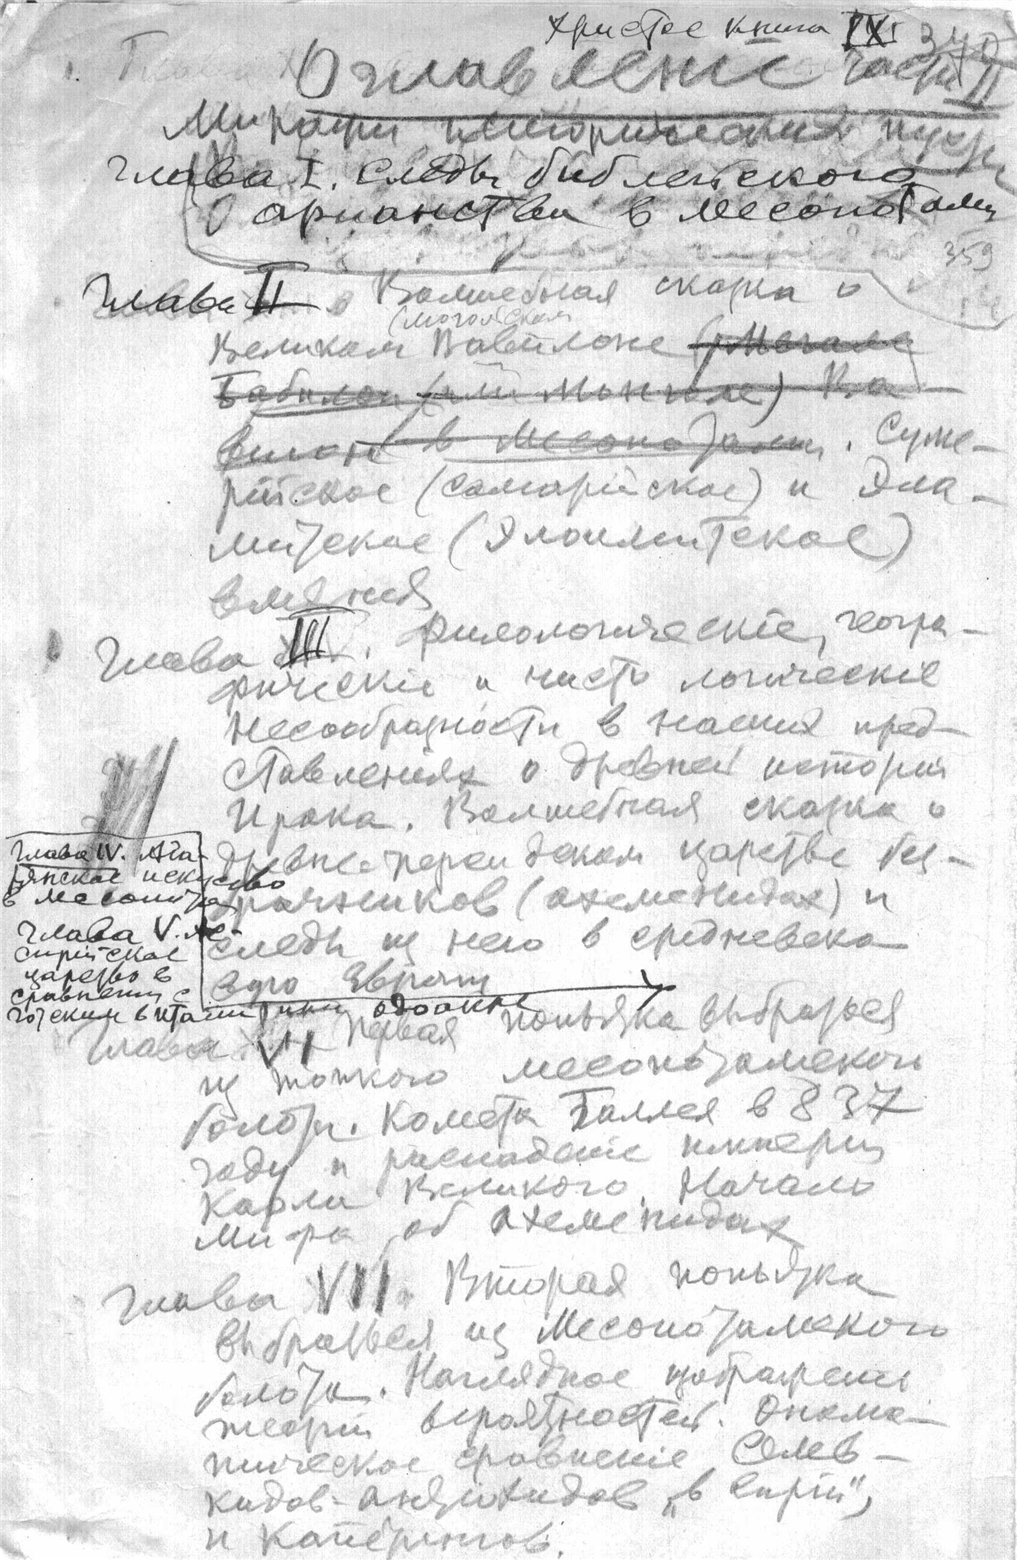 Христос книга IX 340
Оглавленіе части II
Миражи историческихъ пустынь
Глава I. Следы библейского
арианства в Месопотамии
359
Глава II. Волшебная сказка о
(могольском
Великом Вавилоне
. Суме-
рійское (самарійское) и Эла-
митское (Элоимитское)
вліянія
Глава III. Филологическіе, геогра-
фическіе и чисто логическіе
несообразности в наших пред-
ставлениях о древней истории
Ирака. Волшебная сказка о
древне-персидском царстве без-
брачников (ахеменидах) и
следы из него в средневеко-
вую Европу
Глава IV.
искусство
в Месопотам
Глава V. Ас-
сирійское
царство в
сравнении с
готским в Италии
Глава VI Первая попытка выбраться
из топкого месопотамского
болота. Комета Галлея в 837
году и распаденіе империи
Карла Великого. Начало
мифа об ахеменидах
Глава VII. Вторая попытка
выбраться из Месопотамского
болота. Наглядное изображеніе
теоріи вероятностей.
сравненіеСелев-
кидов-антиохидов „в Сиріи",
и Капетингов.